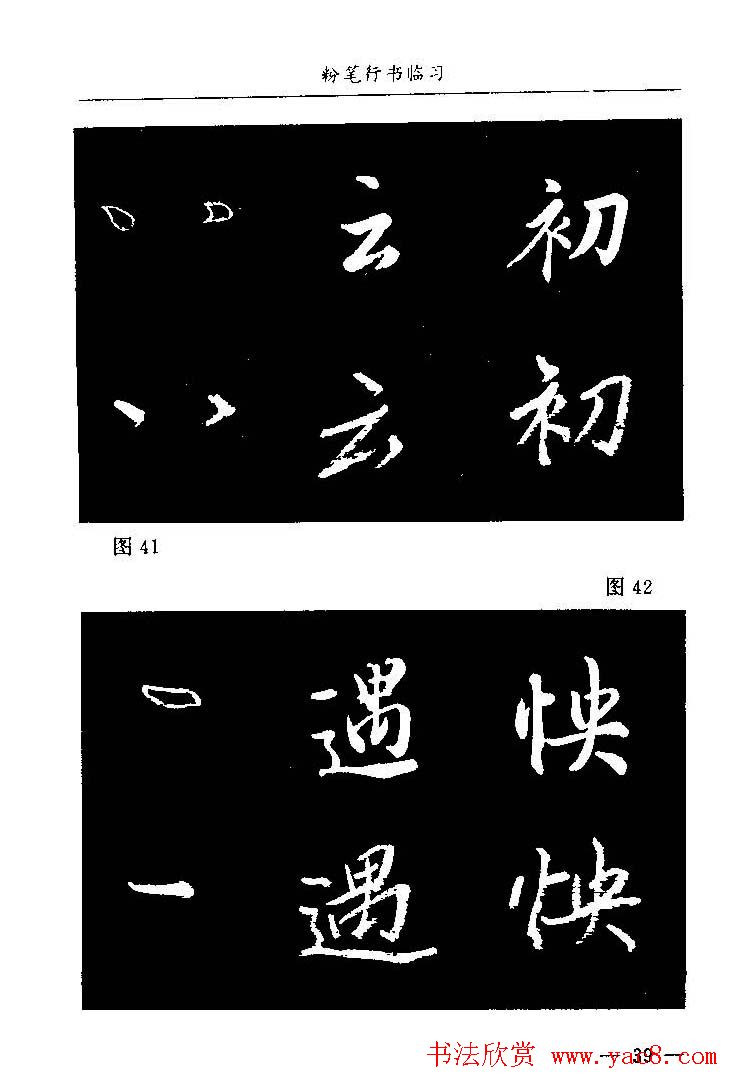 粉笔行书临习
云 初
云 初
图 41
图 42
遇 怏
一 遇 怏
— 39 —
书法欣赏 www.yac8.com